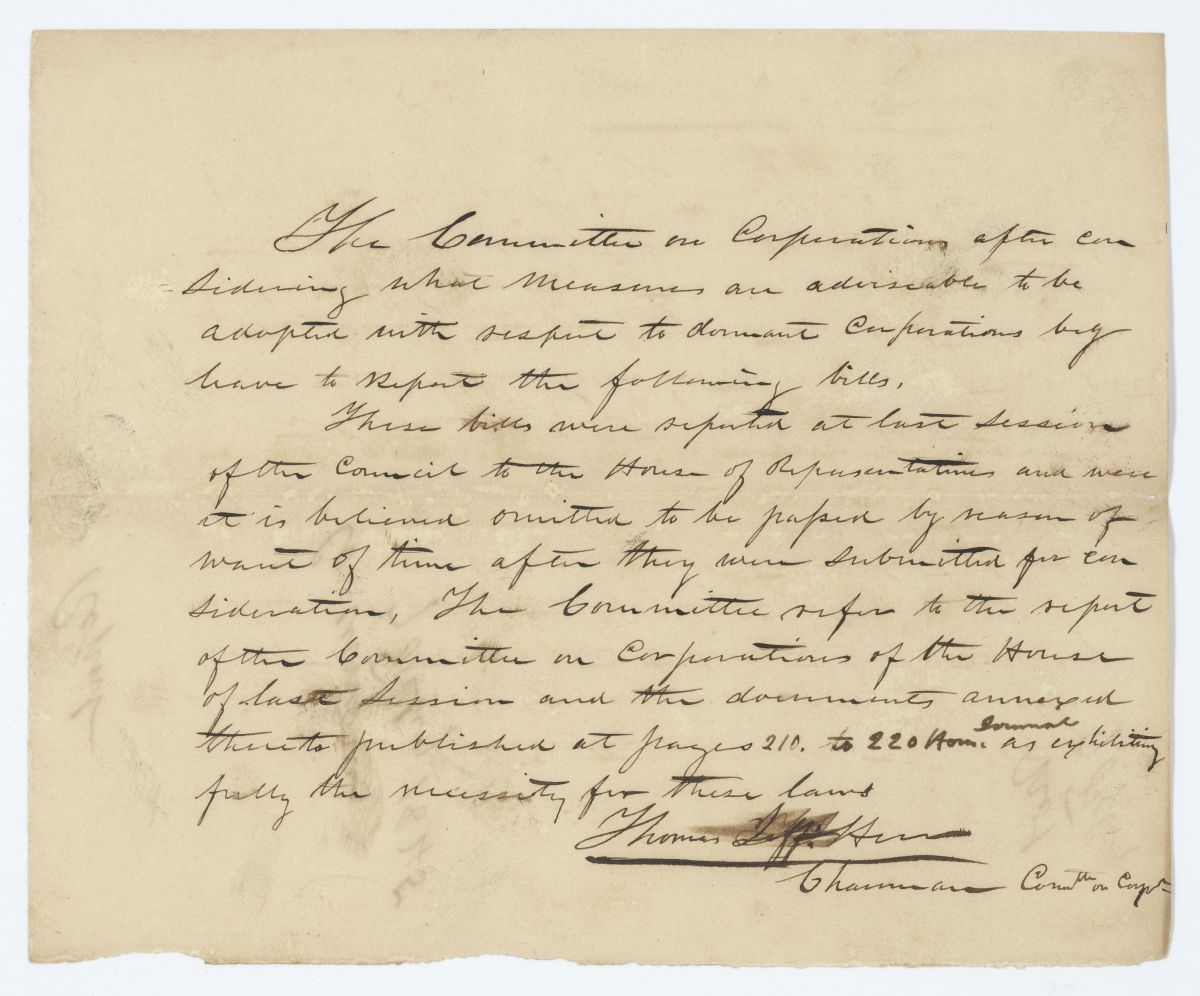 The Committee on Corporations after con
sidering what measures are adviseable to be
adopted with respect to dormant Corporations beg
leave to Report the following bills.
These bills were reported at last Session
of the Council to the House of Representatives and were
it is believed omitted to be passed by reason of
want of time after they were submitted for con
sideration, The Committee refer to the report
of the Committee on Corporations of the House
of last Session and the documents annexed
thereto published at pages 210. to 220 House Journal as exhibiting
fully the necessity for these laws
Thomas Jeff.
Chairman Comtte on Corpns